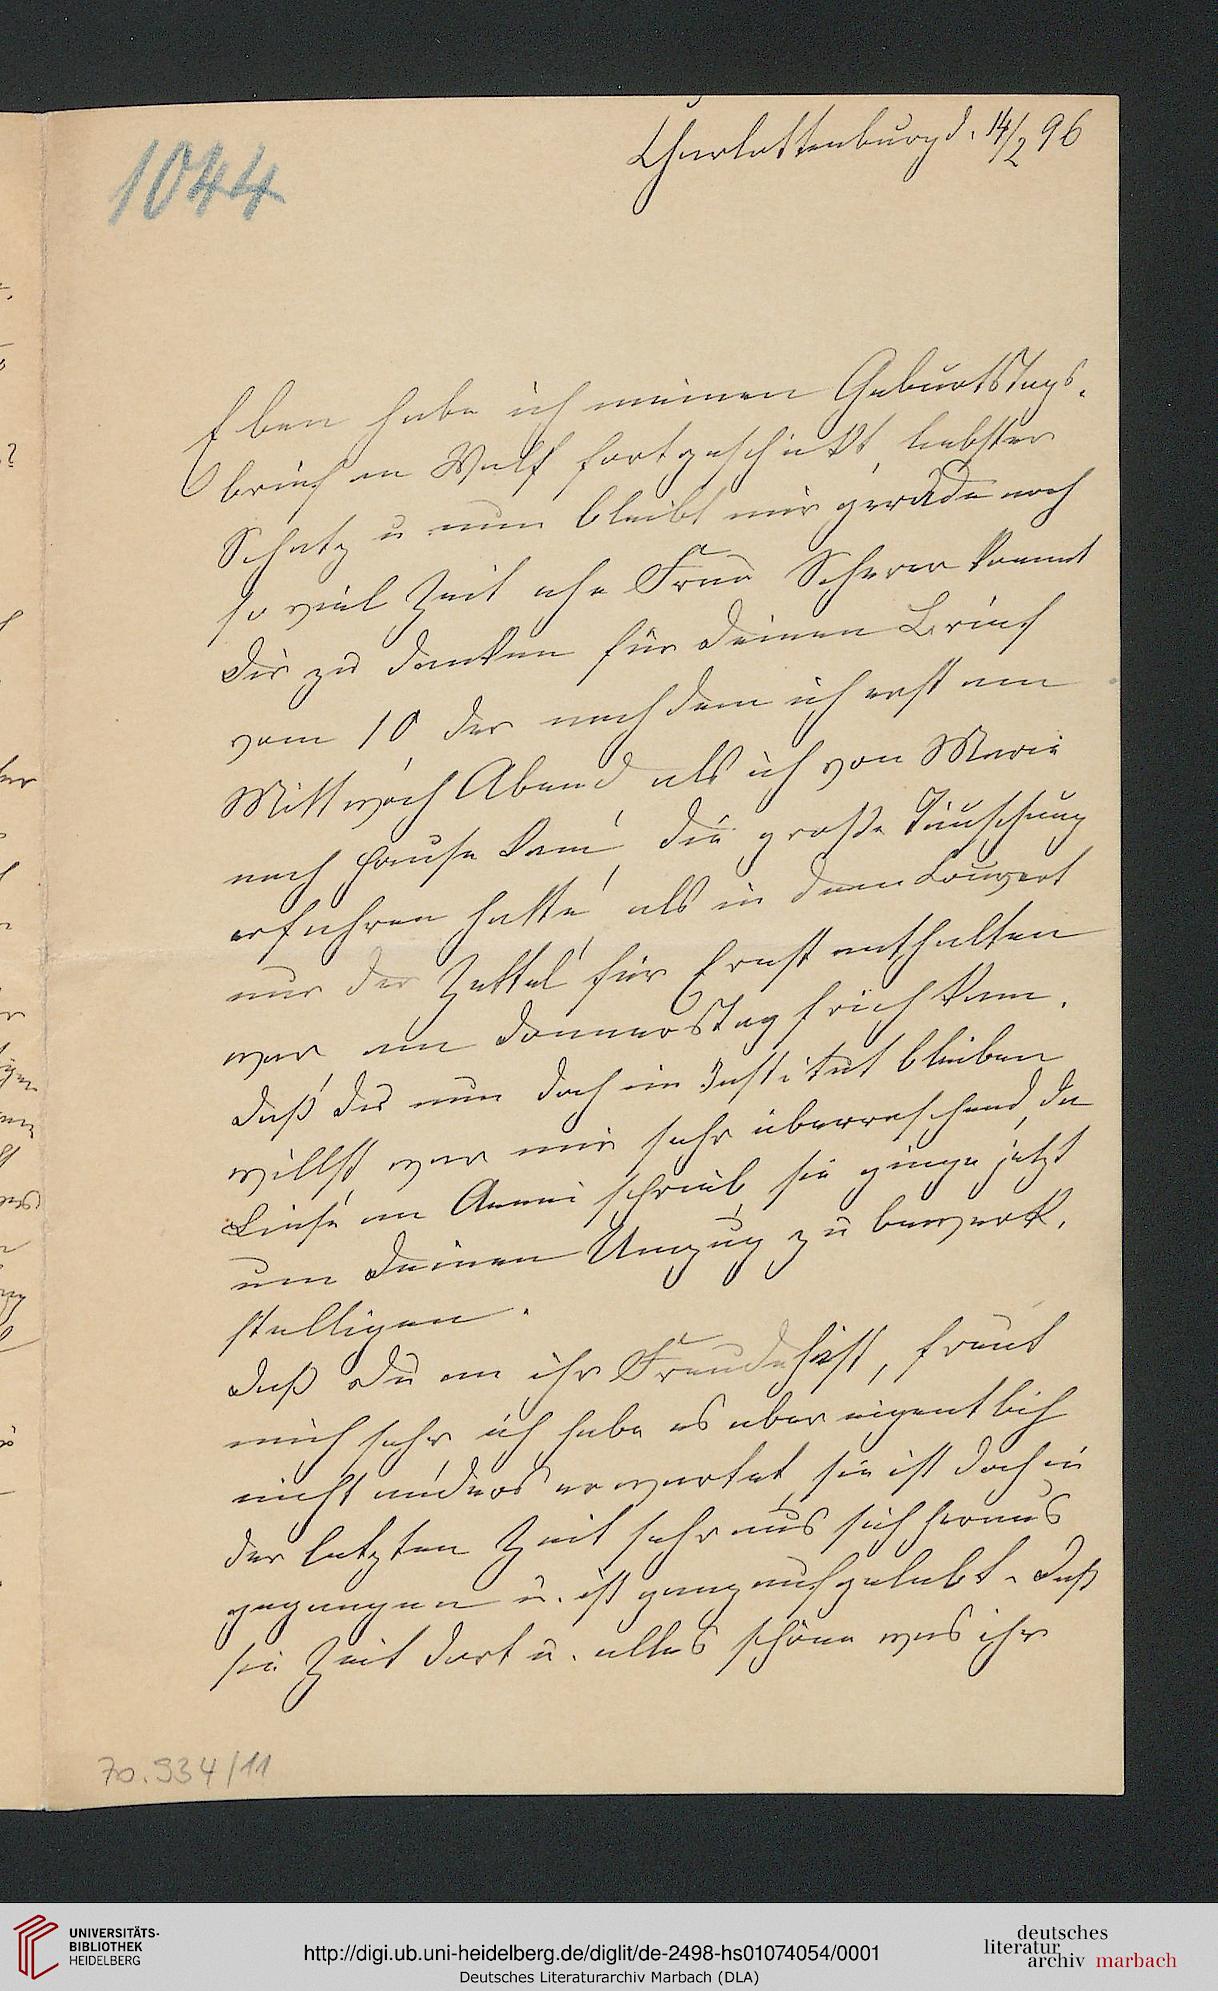 1044
Charlottenburg d. 14/2 96
Eben habe ich meinen Geburtstags-
brief an Wolf fortgeschickt, liebster
Schatz u nun bleibt mir gerade noch
so viel Zeit ehe Frau Scherer kommt
Dir zu danken für Deinen Brief
vom 10 der nachdem ich erst am
Mittwoch Abend als ich von Marie
nach Hause kam, die große Täuschung
erfahren hatte, als in dem Couvert
nur der Zettel für Ernst enthalten
war, am Donnerstag früh kam.
Daß Du nun doch im Institut bleiben
willst war mir sehr überraschend, da
an Aenni schrieb, sie ginge jetzt
um Deinen Umzug zu bewerk-
stelligen.
Daß Du an ihr Freude hast, freut
mich sehr, ich habe es aber eigentlich
nicht anders erwartet, sie ist doch in
der letzten Zeit sehr aus sich heraus
gegangen u. ist ganz aufgelebt. Daß
sie Zeit dort u. alles schöne was ihr
70.934/11
UNIVERSITÄTS-
BIBLIOTHEK
HEIDELBERG
http://digi.ub.uni-heidelberg.de/diglit/de-2498-hs01074054/0001
Deutsches Literaturarchiv Marbach (DLA)
deutsches
literatur
archiv marbach